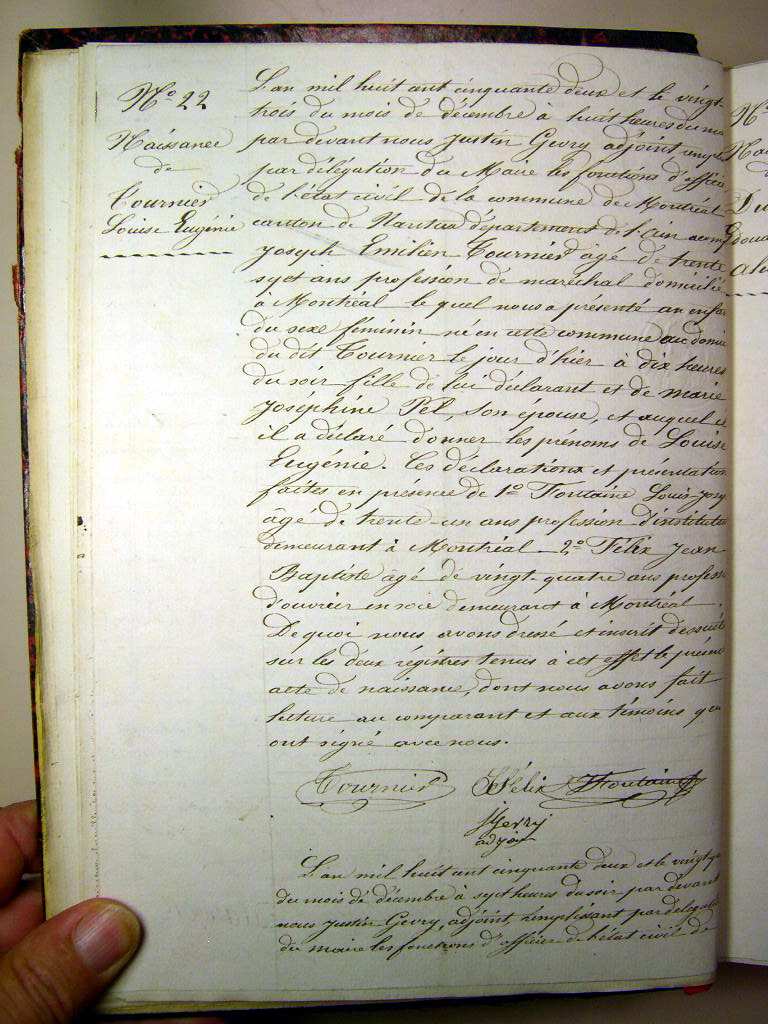 N.º 22
Naissance
de
Tournier
Louise Eugénie
L'an mil huit cent cinquante deux et le vingt-
trois du mois de décembre à huit heures du ma
par devant nous Justin Gevry adjoint rempl
par délégation du Maire les fonctions d'officier
de l'état civil de la commune de Montréal
canton de Nantua département de l'ain a comp
Joseph Emilien Tournier âgé de trente
sept ans profession de marechal domicilié
à Montréal le quel nous a présenté un enfan
du sexe féminin né en cette commune au domi
du dit Tournier le jour d'hier à dix heures
du soir fille de lui déclarant et de marie
Joséphine Pel, son épouse, et auquel
il a déclaré donner les prénoms de Louise
Eugénie. Ces déclarations et présentation
faites en présence de 1º Fontaine Louis
âgé de trente-un ans profession d'institute
demeurant à Montréal 2º Félix Jean
Baptiste âgé de vingt-quatre ans profess
d'ouvrier en soie demeurant à Montréal.
De quoi nous avons dressé et inscrit de suite
sur les deux régistres tenus à cet effet le présen
acte de naissance, dont nous avons fait
lecture au comparant et aux témoins qu
ont signé avec nous.
Tournier Félix Fontaine
J Gevry
adjoint
L'an mil huit cent cinquante deux et le vingt
du mois de décembre à sept heures du soir par devant
nous Justin Gevry, adjoint, remplissant par délég
du maire les fonctions d'officier de l'état civil de
N.º
Na
d
Du
Edoua